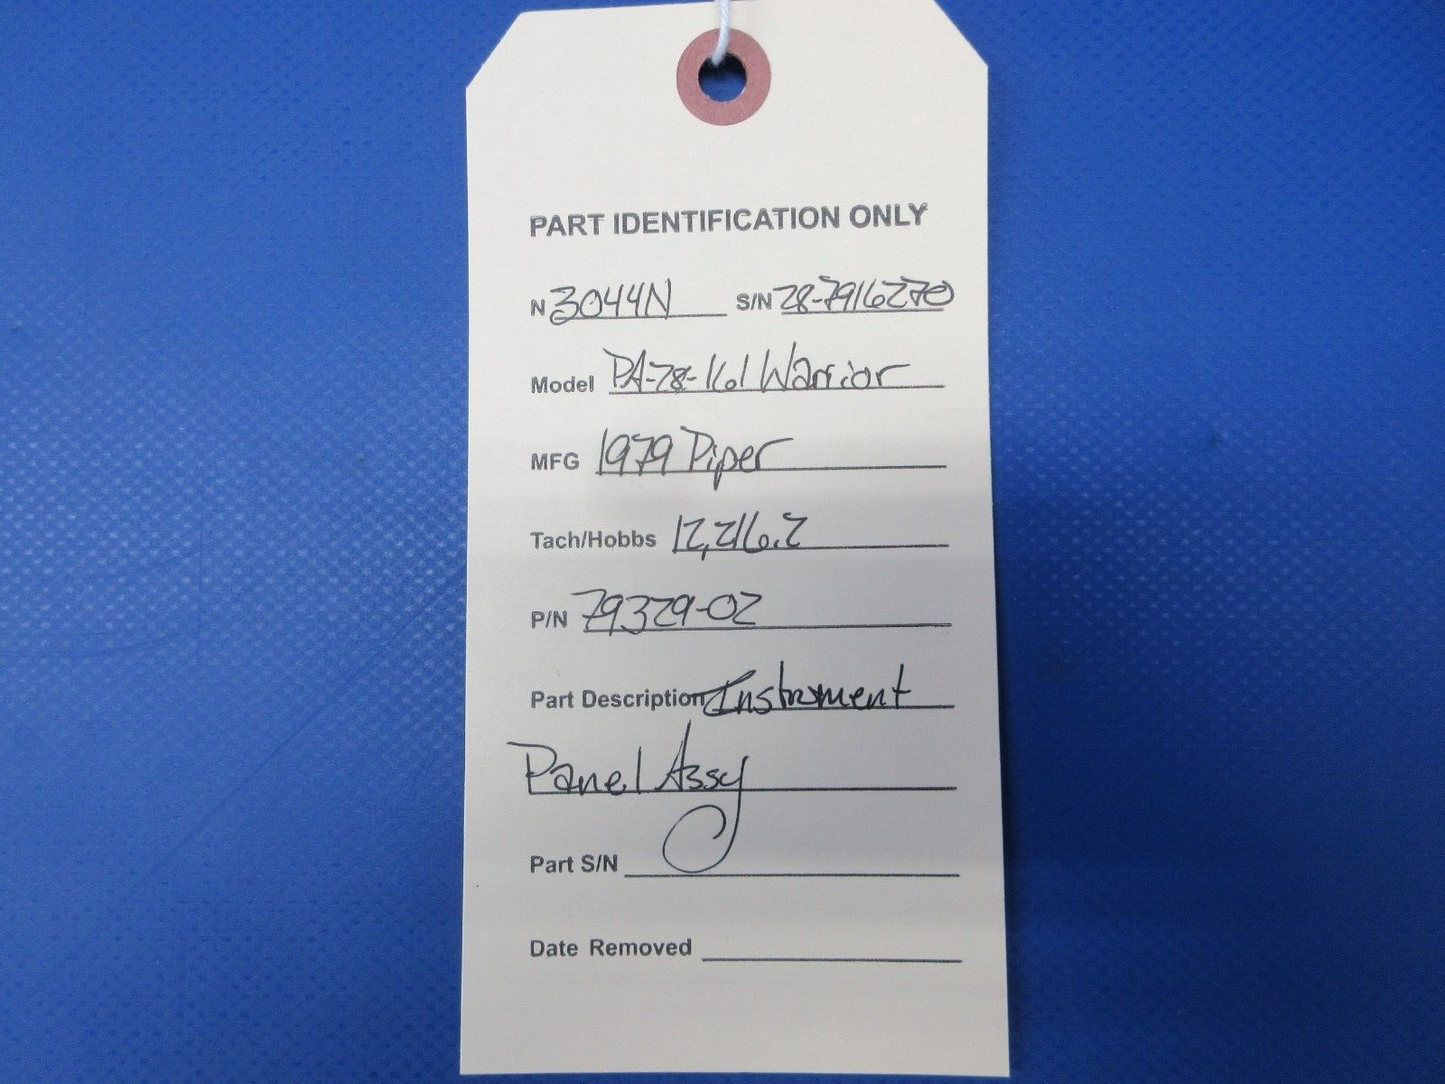 PART IDENTIFICATION ONLY
N 3044N S/N 28-7916270
Model PA-28-161 Warrior
MFG 1979 Piper
Tach/Hobbs 12,216.2
P/N 79329-02
Part Description Instrument
Panel Assy
Part S/N
Date Removed